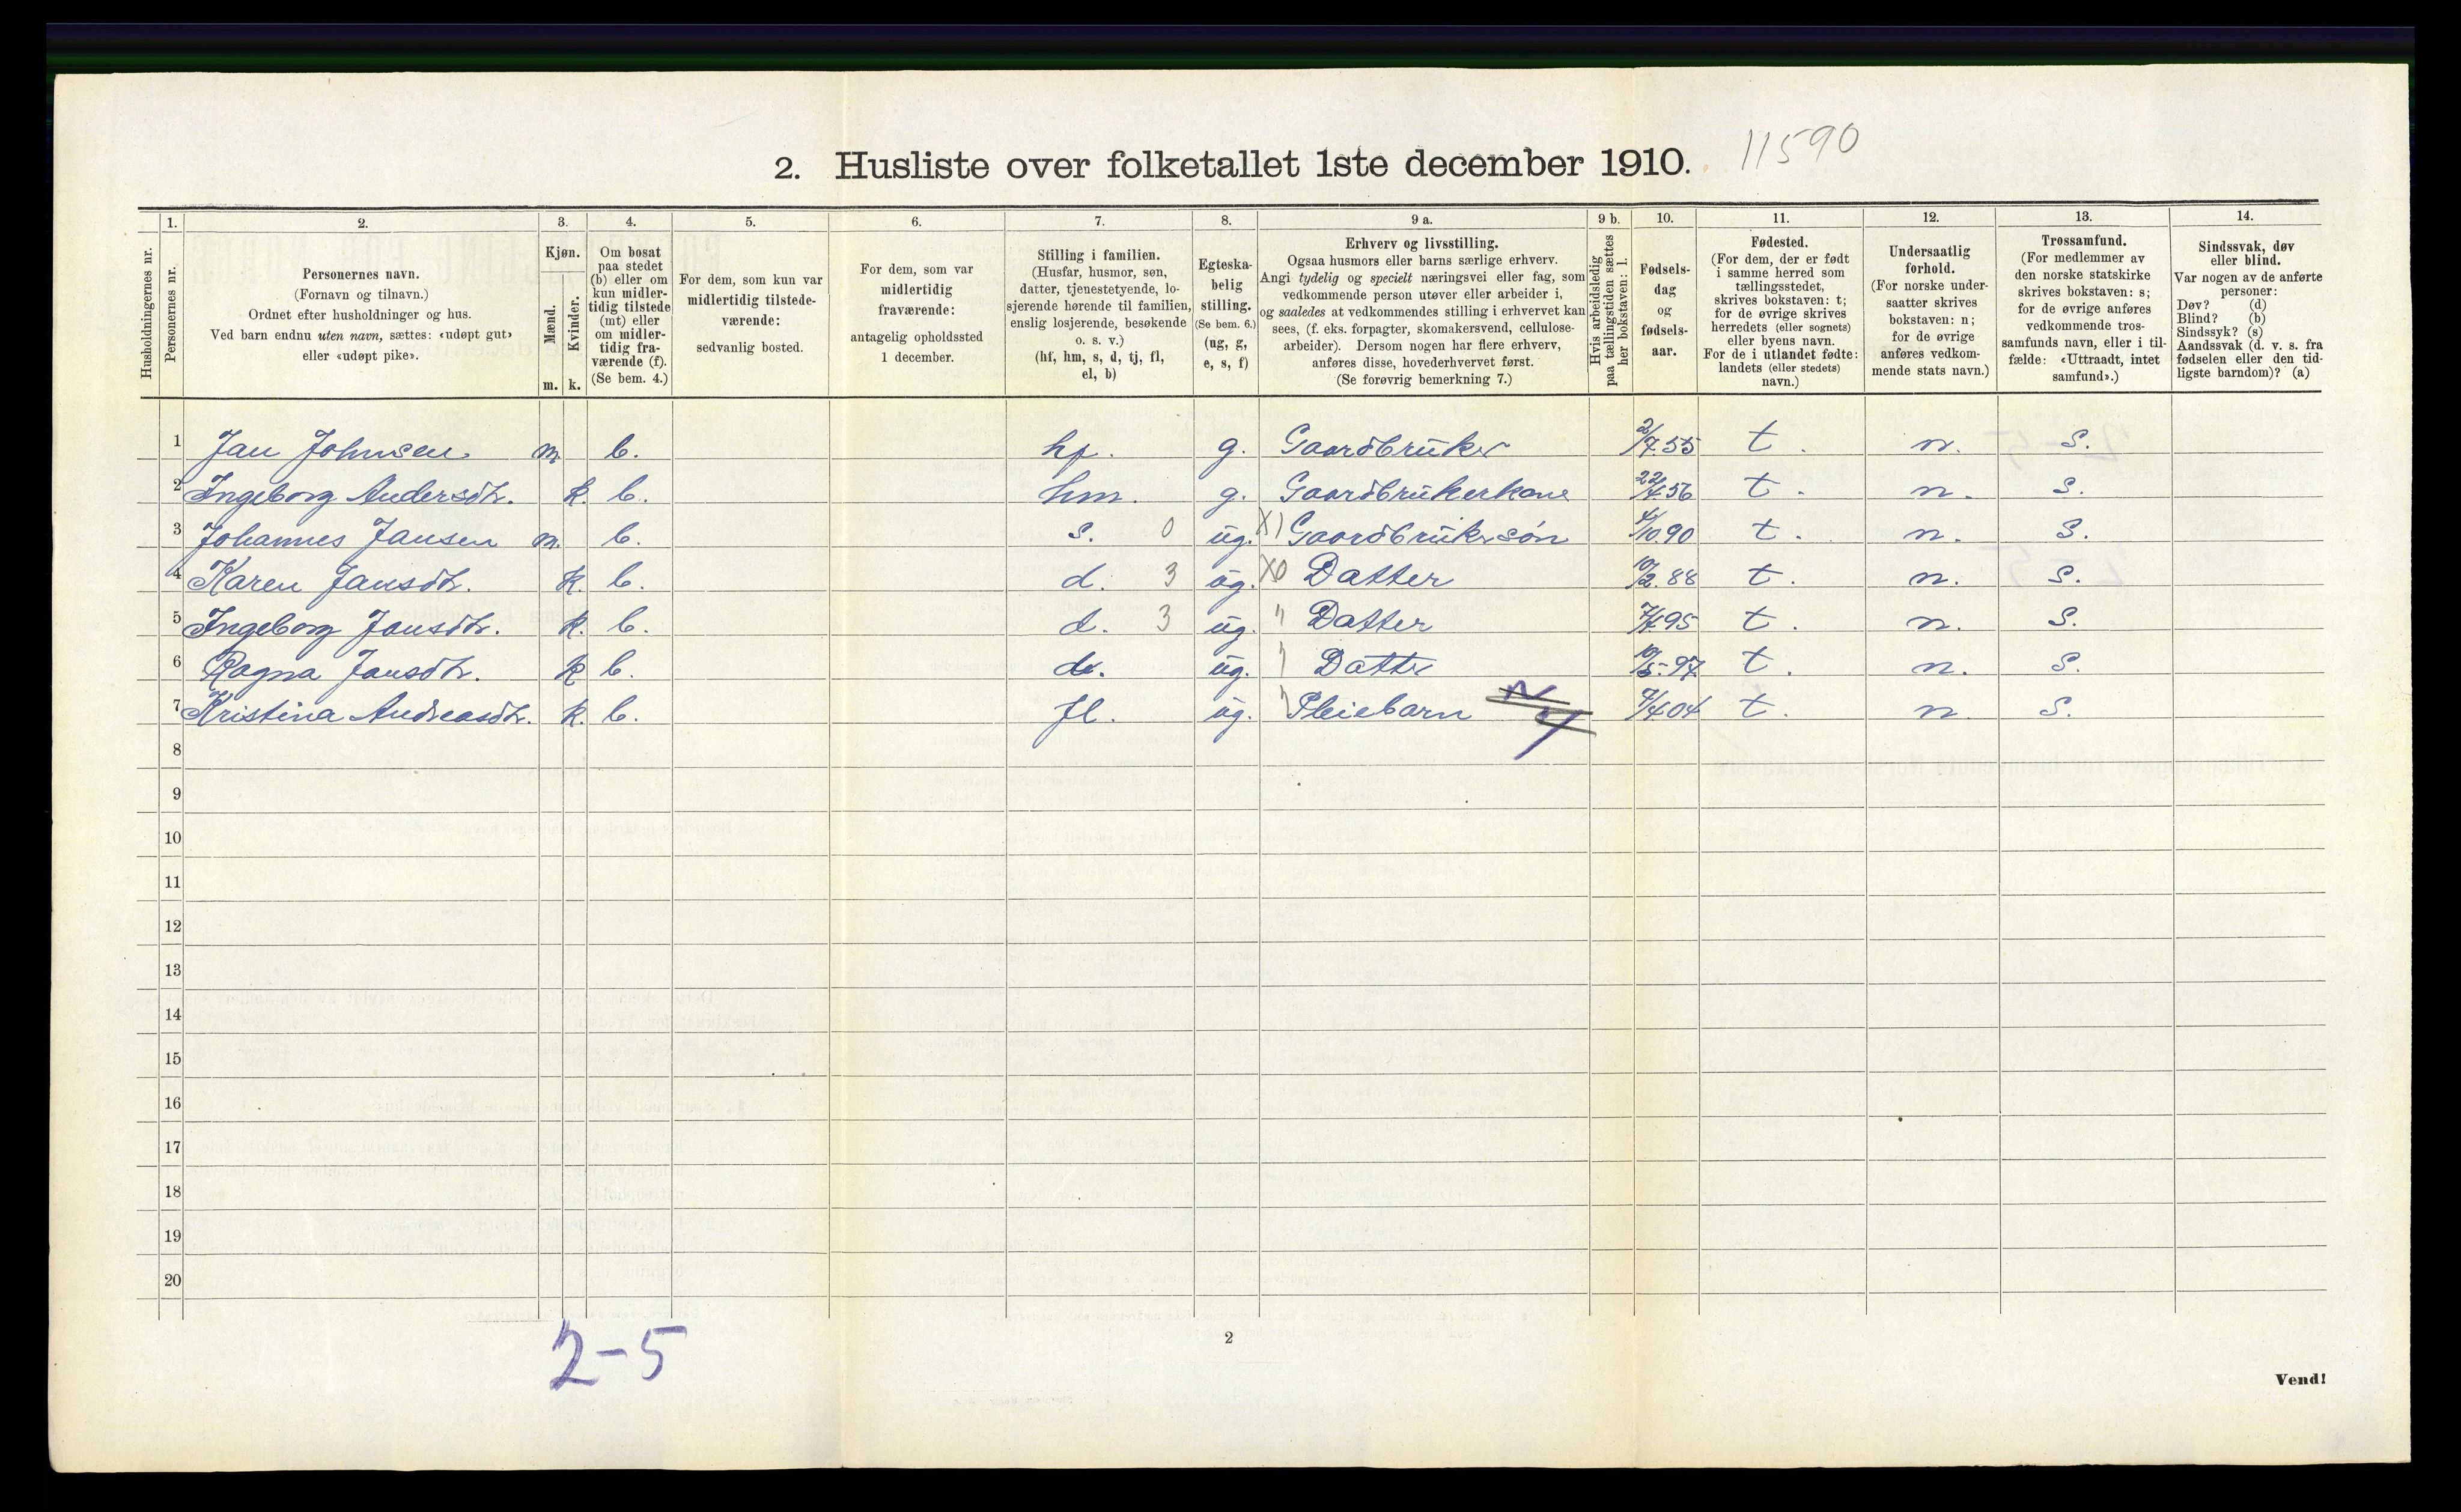 2. Husliste over folketallet 1ste december 1910. 11590
Husholdningernes nr.
1. Personernes nr.
2. Personernes navn. (Fornavn og tilnavn.) Ordnet efter husholdninger og hus. Ved barn endnu uten navn, sættes: «udøpt gut» eller «udøpt pike».
3. Kjøn. Mænd. m. Kvinder. k.
4. Om bosat paa stedet (b) eller om kun midlertidig tilstede (mt) eller om midlertidig fraværende (f). (Se bem. 4.)
5. For dem, som kun var midlertidig tilstedeværende: sedvanlig bosted.
6. For dem, som var midlertidig fraværende: antagelig opholdssted 1 december.
7. Stilling i familien. (Husfar, husmor, søn, datter, tjenestetyende, losjerende hørende til familien, enslig losjerende, besøkende o. s. v.) (hf, hm, s, d, tj, fl, el, b)
8. Egteskabelig stilling. (Se bem. 6.) (ug, g, e, s, f)
9 a. Erhverv og livsstilling. Ogsaa husmors eller barns særlige erhverv. Angi tydelig og specielt næringsvei eller fag, som vedkommende person utøver eller arbeider i, og saaledes at vedkommendes stilling i erhvervet kan sees, (f. eks. forpagter, skomakersvend, cellulosearbeider). Dersom nogen har flere erhverv, anføres disse, hovederhvervet først. (Se forøvrig bemerkning 7.)
9 b. Hvis arbeidsledig paa tællingstiden sættes her bokstaven: l.
10. Fødselsdag og fødselsaar.
11. Fødested. (For dem, der er født i samme herred som tællingsstedet, skrives bokstaven: t; for de øvrige skrives herredets (eller sognets) eller byens navn. For de i utlandet fødte: landets (eller stedets) navn.)
12. Undersaatlig forhold. (For norske undersaatter skrives bokstaven: n; for de øvrige anføres vedkommende stats navn.)
13. Trossamfund. (For medlemmer av den norske statskirke skrives bokstaven: s; for de øvrige anføres vedkommende trossamfunds navn, eller i tilfælde: «Uttraadt, intet samfund».)
14. Sindssvak, døv eller blind. Var nogen av de anførte personer: Døv? (d) Blind? (b) Sindssyk? (s) Aandssvak (d. v. s. fra fødselen eller den tidligste barndom)? (a)
1 Jan Johnsen m. b. hf. g. Gaardbruker 2/7.55 t. n. s.
2 Ingeborg Andersdtr. k. b. hm. g. Gaardbrukerkone 22/4.56 t. n. s.
3 Johannes Jansen m. b. s. 0 ug. X) Gaardbrukersøn 4/10.90 t. n. s.
4 Karen Jansdtr. k. b. d. 3 ug. X0 Datter 10/2.88 t. n. s.
5 Ingeborg Jansdtr. k. b. d. 3 ug. " Datter 7/4.95 t. n. s.
6 Ragna Jansdtr. k b. d. ug. " Datter 10/5-97 t. n. s.
7 Kristina Andreasdtr. k. b. fl. ug. " Pleiebarn 9/4.04 t. n. s.
8
9
10
11
12
13
14
15
16
17
18
19
20
2-5
2
Vend!